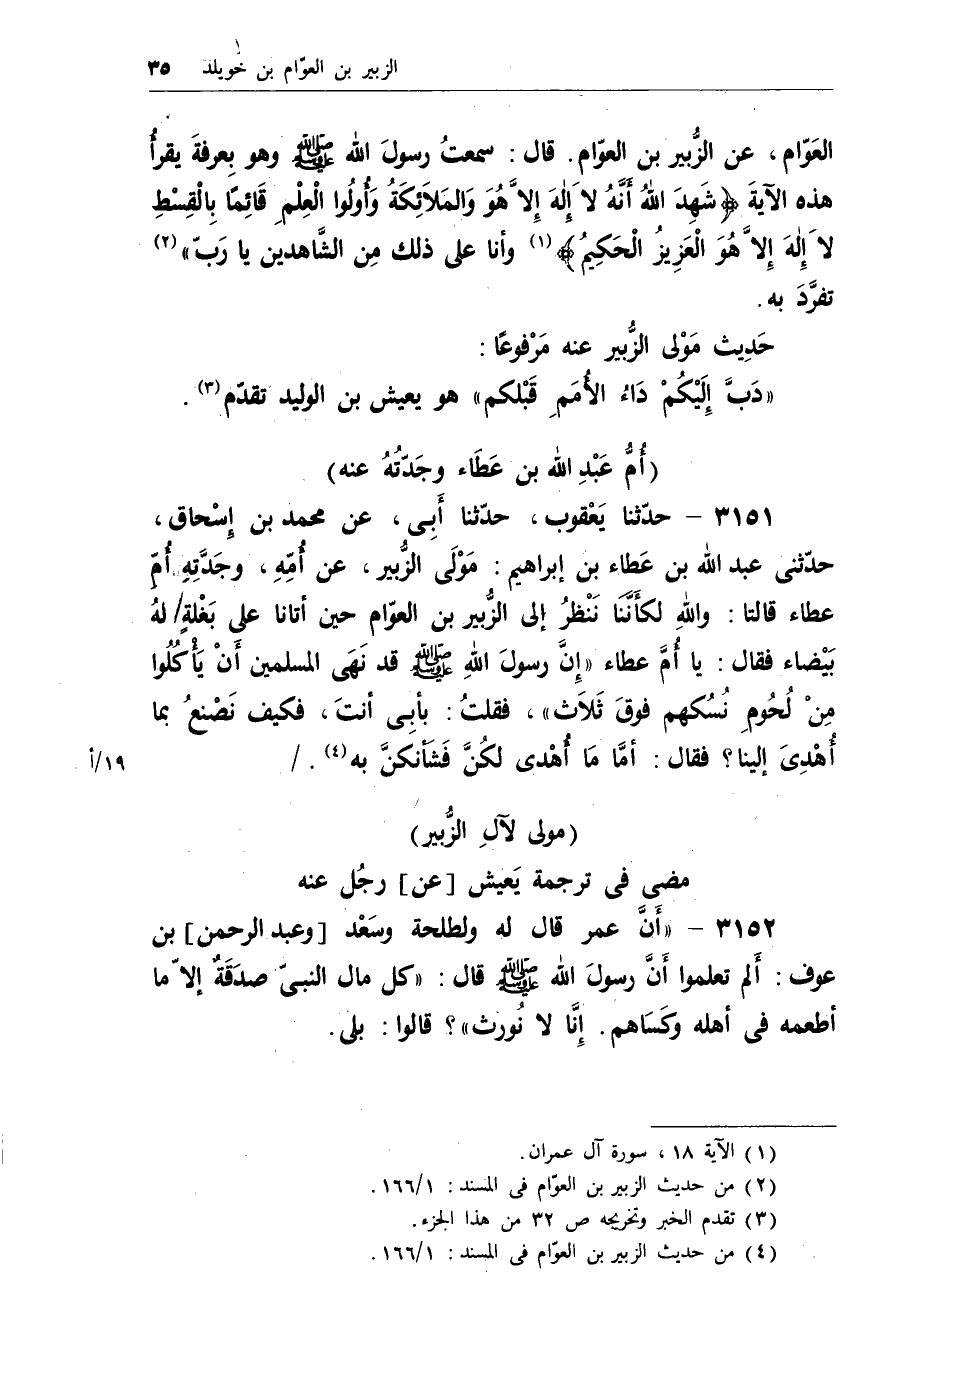 الزبير بن العوّام بن خويلد ٣٥
العَوّام، عن الزُّبير بن العوّام. قال: سمعتُ رسولَ الله ﷺ وهو بِعرفةَ يقرأُ
هذه الآيةَ ﴿شَهِدَ اللهُ أَنَّهُ لاَ إِلٰهَ إِلاَّ هُوَ وَالمَلاَئِكَةُ وَأُولُوا الْعِلْمِ قَائِمًا بِالْقِسْطِ
لاَ إِلٰهَ إِلاَّ هُوَ الْعَزِيزُ الْحَكِيمُ﴾(١) وأنا على ذلك مِن الشَّاهدين يا رَبّ»(٢)
تفرَّدَ به.
حَدِيث مَوْلى الزُّبير عنه مَرْفوعًا:
«دَبَّ إِلَيْكُمْ دَاءُ الأُمَمِ قَبْلكم» هو يعيش بن الوليد تقدّم(٣).
(أُمُّ عَبْدِ الله بن عَطَاء وجَدّتُهُ عنه)
٣١٥١ - حدّثنا يَعْقوب، حدّثنا أَبِى، عن محمد بن إِسْحاق،
حدّثنى عبد الله بن عَطاء بن إبراهيم: مَوْلَى الزُّبير، عن أُمِّهِ، وجَدَّتِهِ أُمّ
عطاء قالتا: واللهِ لكأنَّنَا نَنْظرُ إلى الزُّبير بن العوّام حين أتانا على بَغْلةٍ/ لهُ
بَيْضاء فقال: يا أُمَّ عطاء «إِنَّ رسولَ اللهِ ﷺ قد نَهَى المسلمين أَنْ يَأْكُلُوا
مِنْ لُحُومِ نُسُكهم فوقَ ثَلاَث»، فقلتُ: بأبِى أنتَ، فكيف نَصْنعُ بما
أُهْدِىَ إلينا؟ فقال: أمَّا مَا أُهْدى لكُنَّ فَشأنكنَّ به(٤). / ١٩/أ
(مولى لآلِ الزُّبير)
مضى فى ترجمة يَعيش [عن] رجُل عنه
٣١٥٢ - «أَنَّ عمر قال له ولطلحة وسَعْد [وعبد الرحمن] بن
عوف: أَلم تعلموا أَنَّ رسولَ الله ﷺ قال: «كل مال النبىّ صدَقَةٌ إلاّ ما
أطعمه فى أهله وكَسَاهم. إِنَّا لا نُورث»؟ قالوا: بلى.
(١) الآية ١٨، سورة آل عمران.
(٢) من حديث الزبير بن العوّام فى المسند: ١٦٦/١.
(٣) تقدم الخبر وتخريجه ص ٣٢ من هذا الجزء.
(٤) من حديث الزبير بن العوّام فى المسند: ١٦٦/١.